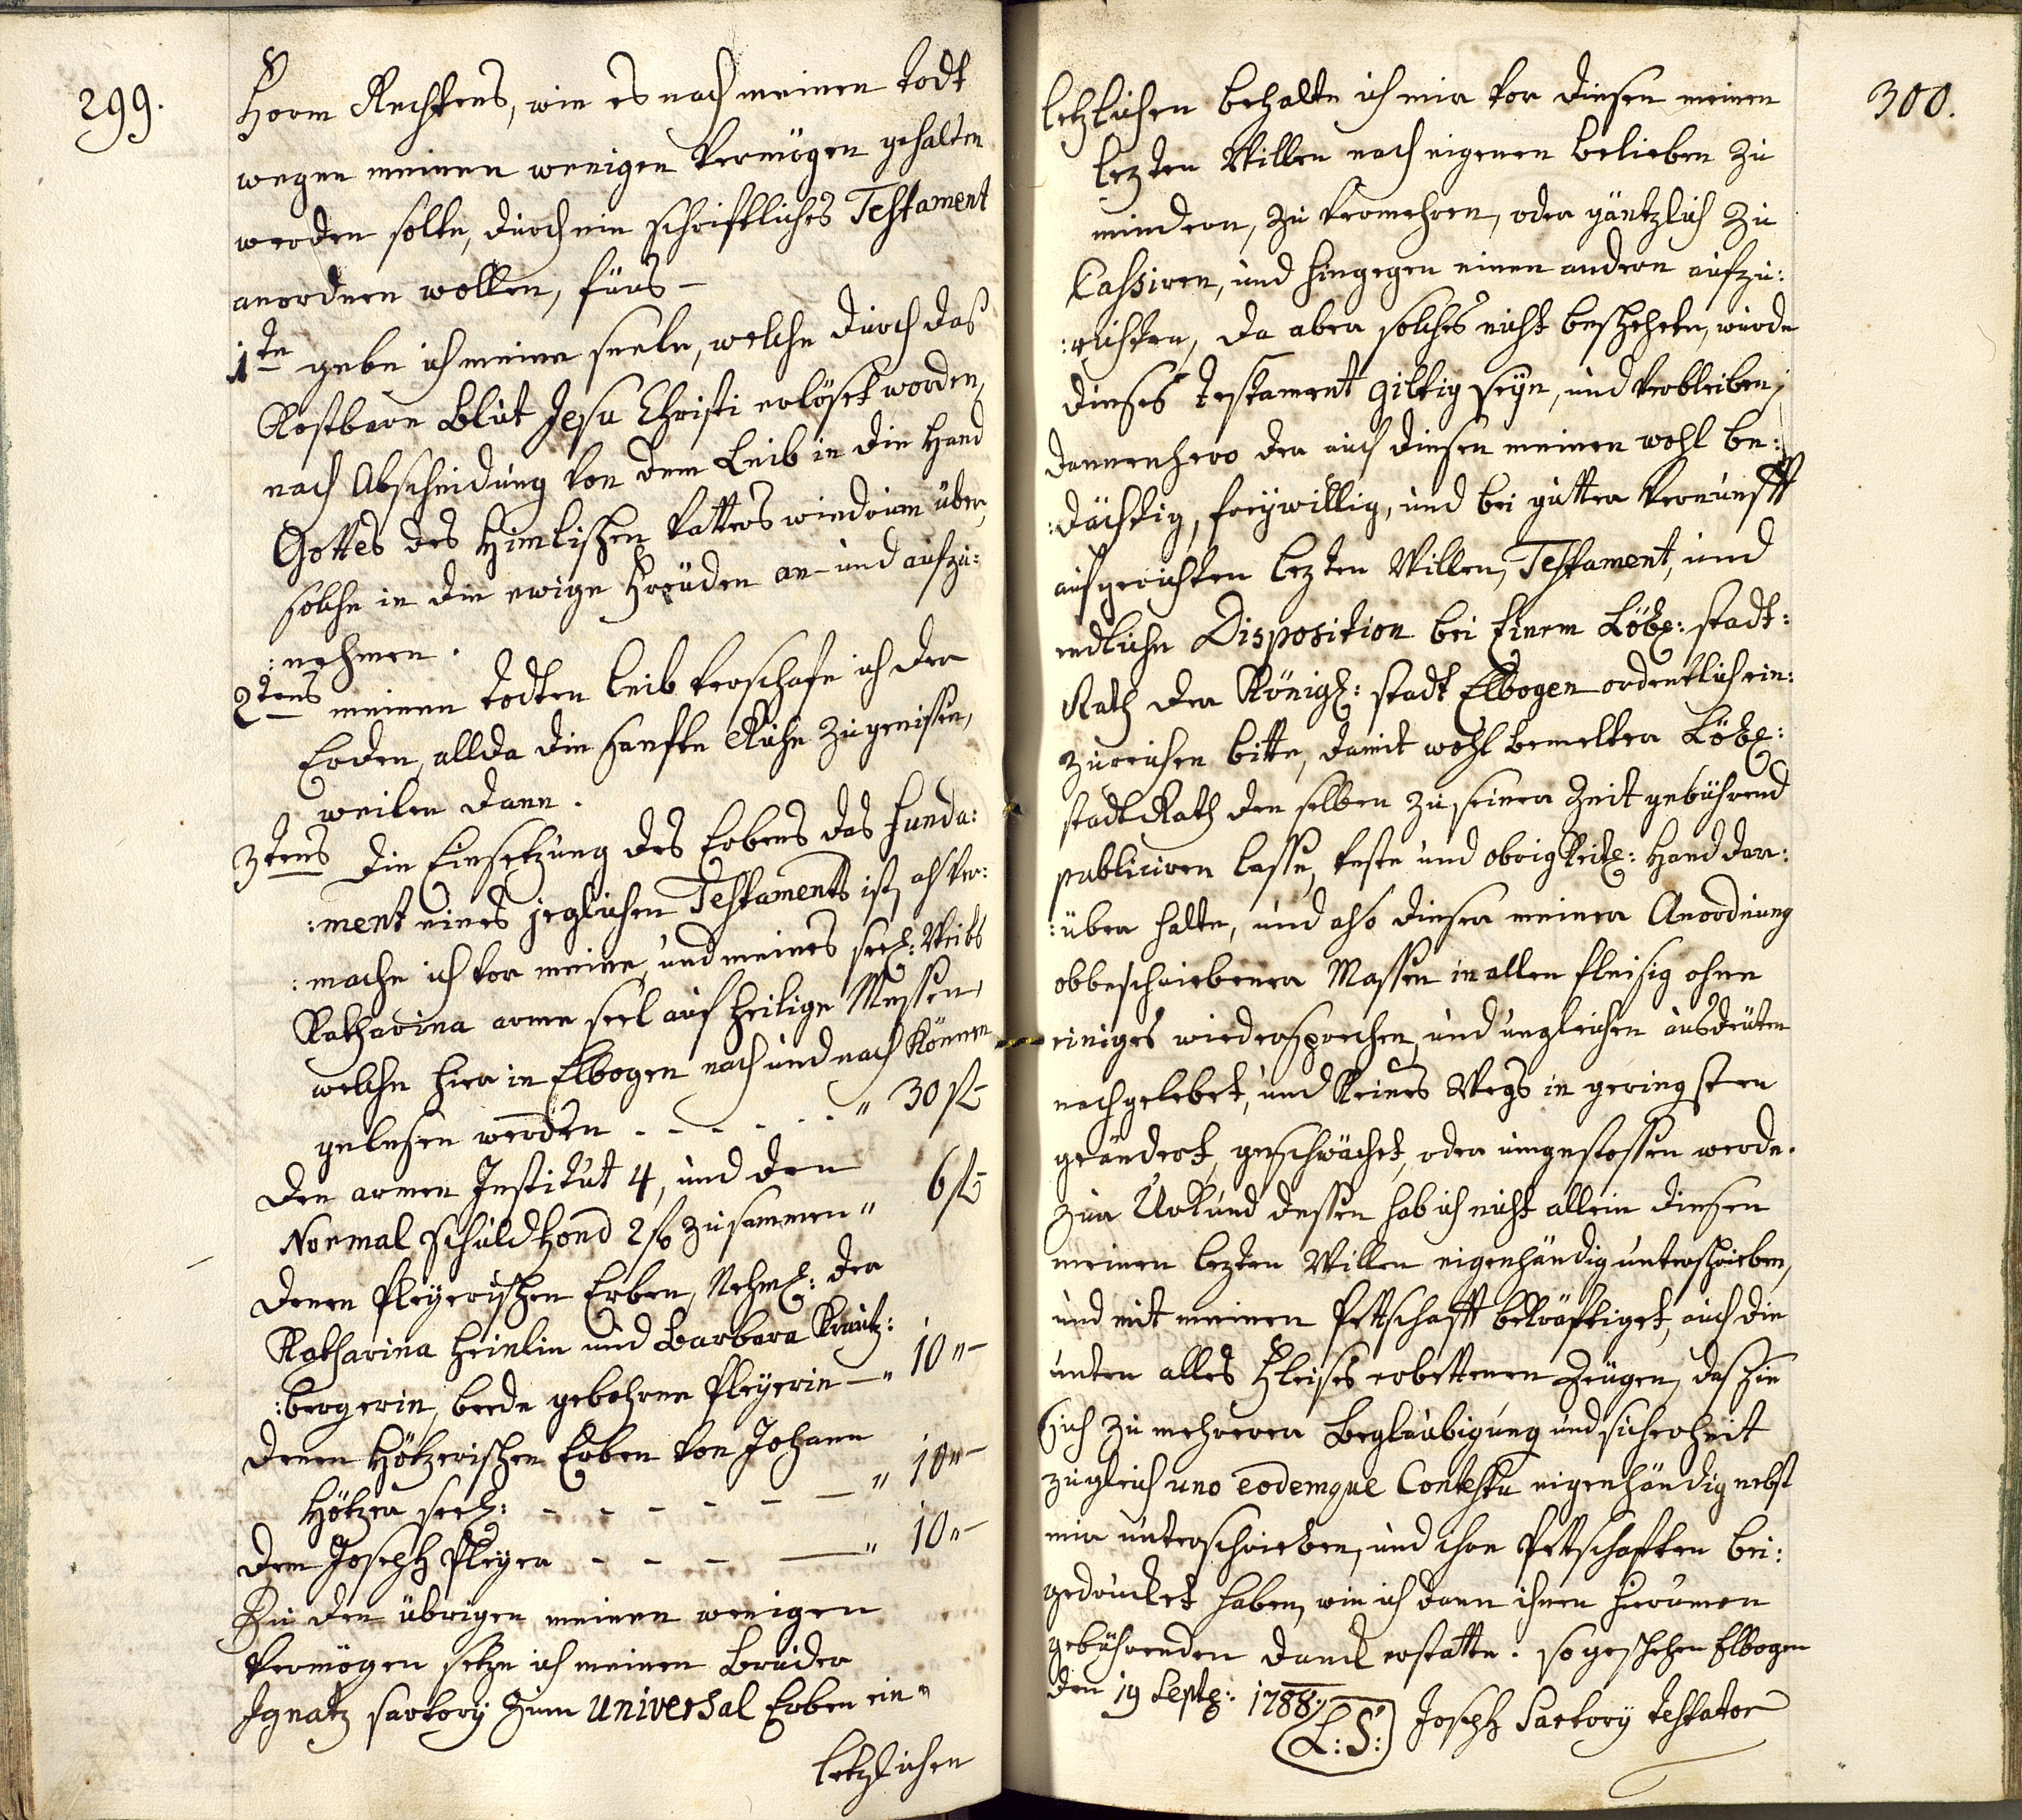 299.
Form Rechtens, wie es nach meinen todt
wegen meinen wenigen Vermögen gehalten
werden solte, durch ein schriftliches Testament
anordnen wollen, fürs –
1te gebe ich meine seele, welche durch das
Kostbare Blut Jesu Christi erlöset worden,
nach Abscheidung von dem Leib in die Hand
Gottes des Himlischen Vatters wiedrum über,
solche in die ewige Freuden an- und aufzu:
:nehmen.
2tens meinen todten leib verschafe ich der
Erden, allda die sanfte Ruhe zugenissen,
weilen dann.
3tens die Einsetzung des Erbens das Funda:
:ment eines jeglichen Testaments ist, als ver:
:mache ich vor meine, und meines seel: Weibs
Katharina arme seel auf heilige Messen,
welche hier in Elbogen nach und nach können
gelesen werden - - - - - " 30 fl-
den armen Institut 4, und den
Normal schuld Fond 2 fl zusammen " 6 fl-
denen Pleyerischen Erben, Nehml: der
Katharina Heinlin und Barbara Krautz:
:bergerin, beede gebohrne Pleyerin – " 10 "-
denen Hötzerischen Erben von Johann
Hötzer seel: - - - - - - " 10 "-
dem Joseph Pleyer - - - — " 10 "-
Zu den übrigen meinen wenigen
Vermögen setze ich meinen Bruder
Ignatz sartory zum Universal Erben ein "
letzlichen
300.
letzlichen behalte ich mir vor diesen meinen
lezten Willen nach eigenen belieben zu
mindern, zu vermehren, oder gäntzlich zu
Cassiren, und hingegen einen andern aufzu:
:richten, da aber solches nicht beschehete, wurde
dieses testament giltig seyn, und verbleiben,
dannenhero der auch diesen meinen wohl be:
:dächtig, freywillig, und bei guter Vernunfft
aufgerichten lezten Willen, Testament, und
endliche Disposition bei Einem Löbl: stadt:
Rath der Königl: stadt Elbogen ordentlich ein:
zureichen bitte, damit wohl bemelter Löbl:
stadt Rath den selben zu seiner Zeit gebührend
publiciren lasse, veste und obrigkeitl: Hand dar:
:über halte, und also dieser meiner Anordnung
obbeschriebener Massen in allen fleisig ohne
einiges wiedersprechen, und ungleichen ausdeuten
nachgelebet, und keines Wegs in geringsten
geändert, geschwächet, oder umgestossen werde.
zur Urkund dessen hab ich nicht allein diesen
meinen lezten Willen eigenhändig unterschrieben,
und mit meinen Pettschafft bekräftiget, auch die
unten alles Fleises erbettenen Zeugen, das Sie
sich zu mehrerer Beglaubigung und sicherheit
zugleich uno eodemque Contextu eigenhändig nebst
mir unterschrieben, und ihre Pettschafften bei:
gedrucket haben, wie ich dann ihnen hierumen
gebührenden danck erstatte. so geschehen Elbogen
den 19 Septb: 1788.
(L:S:) Joseph Sartory testator